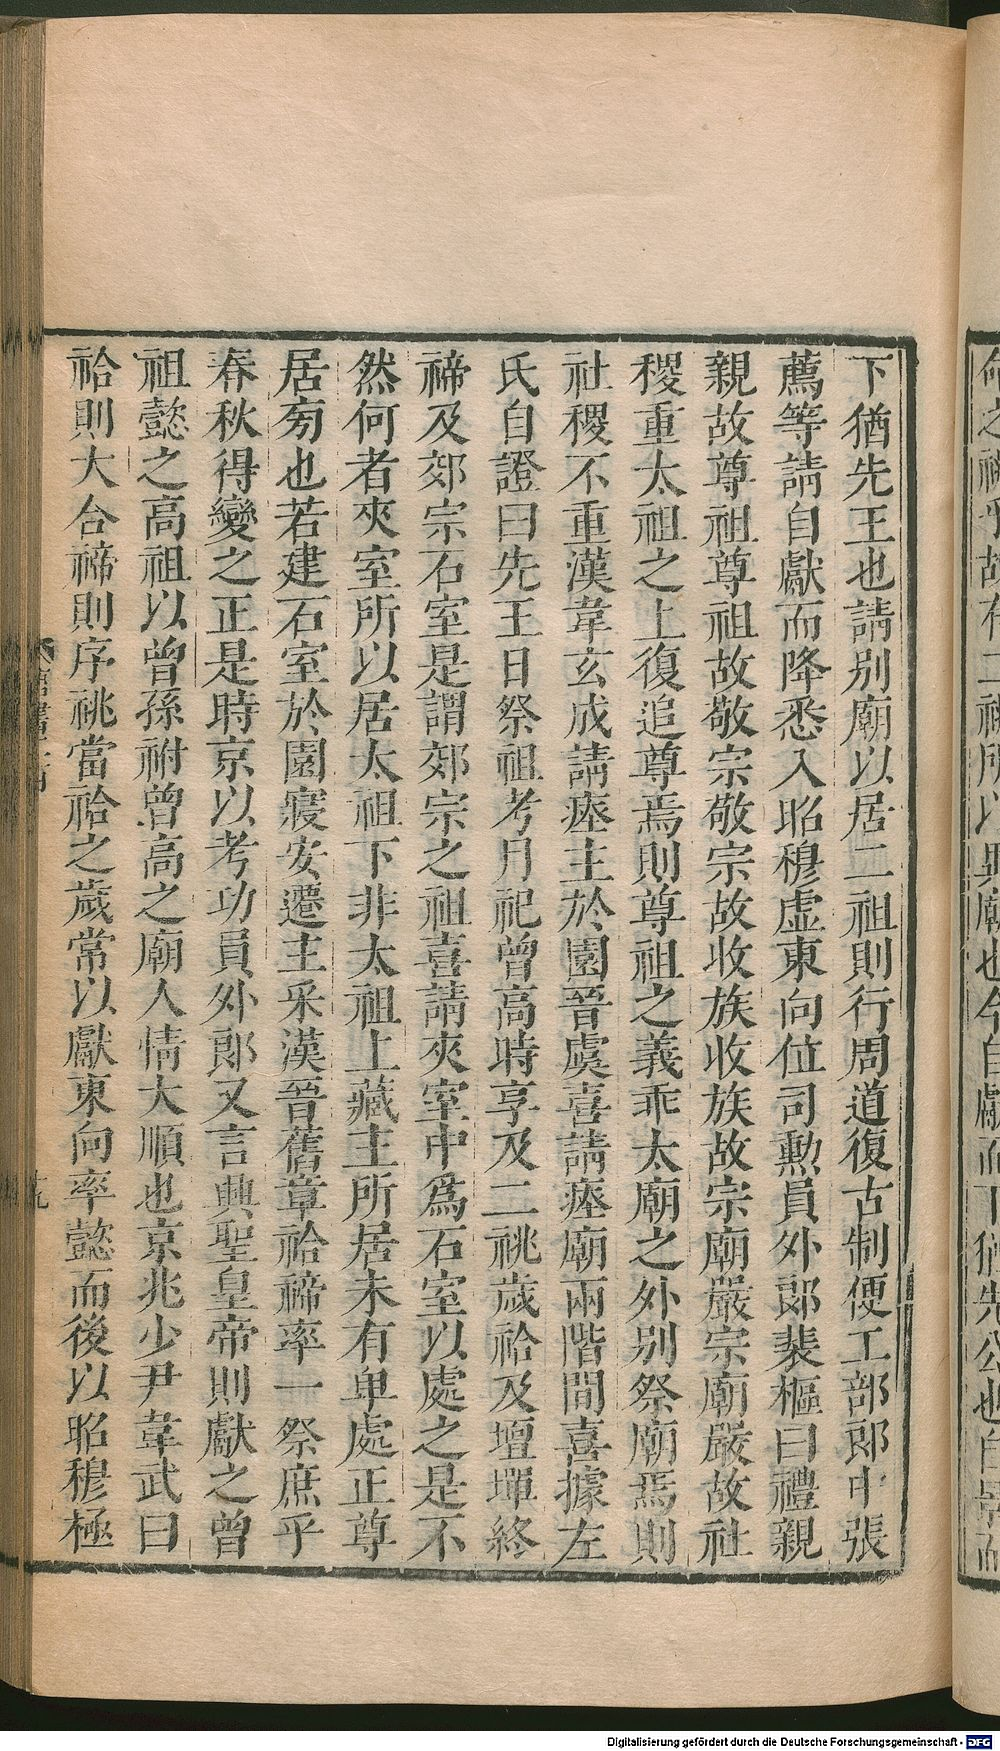 下猶先王也請別廟以居二祖則行周道復古制便工部郎中張
薦等請自獻而降悉入昭穆虛東向位司勲員外郎裴樞曰禮親
親故尊祖尊祖故敬宗敬宗故收族收族故宗廟嚴宗廟嚴故社
稷重太祖之上復追尊焉則尊祖之義乖太廟之外別祭廟焉則
社稷不重漢韋玄成請瘞主於園晉虞喜請瘞廟兩階間喜據左
氏自證曰先王日祭祖考月祀曾高時享及二祧歲祫及壇墠終
禘及郊宗石室是謂郊宗之祖喜請夾室中爲石室以處之是不
然何者夾室所以居太祖下非太祖上藏主所居未有卑處正尊
居旁也若建石室於園寢安遷主采漢晉舊章祫禘率一祭庶乎
春秋得變之正是時京以考功員外郎又言興聖皇帝則獻之曾
祖懿之高祖以曾孫祔曾高之廟人情大順也京兆少尹韋武曰
祫則大合禘則序祧當祫之歲常以獻東向率懿而後以昭穆極
Digitalisierung gefördert durch die Deutsche Forschungsgemeinschaft - DFG